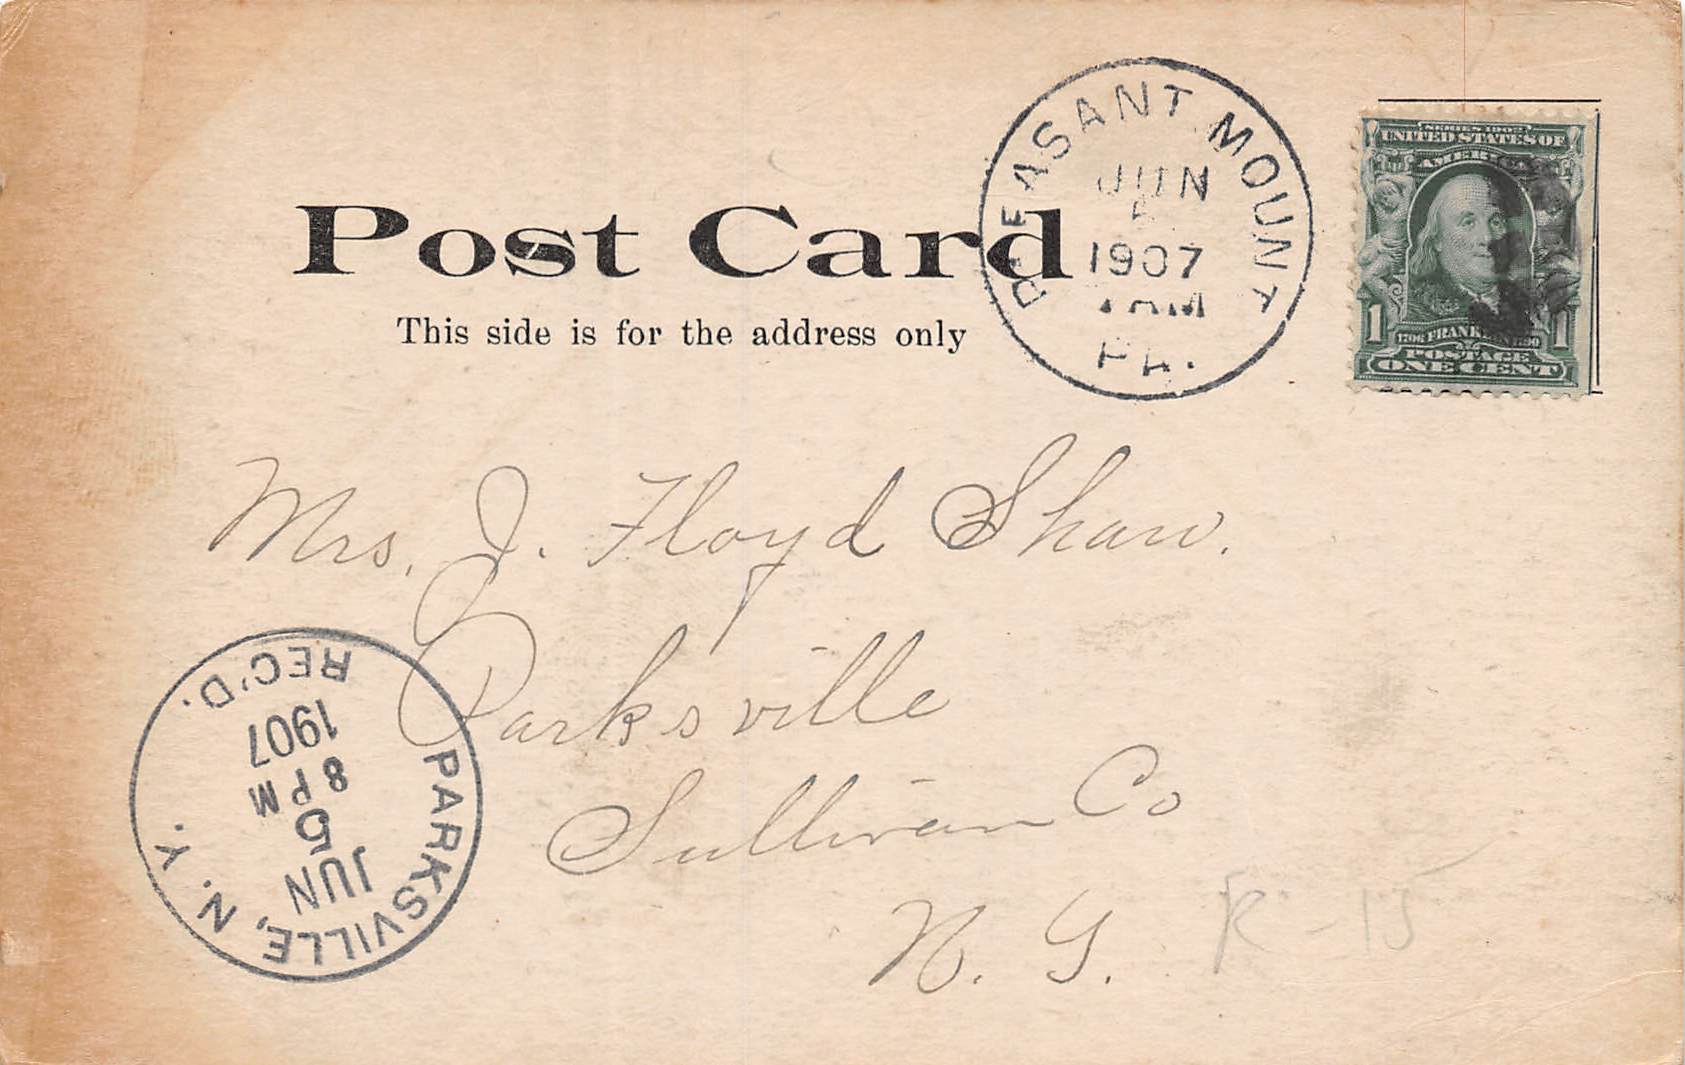 Post Card
This side is for the address only
PLEASANT MOUNT
JUN
5
1907
AM
PA.
SERIES 1902
UNITED STATES OF
AMERICA
1 1706 FRANKLIN 1790 1
POSTAGE
ONE CENT
Mrs. J. Floyd Shaw.
Parksville
Sullivan Co
N. Y.
K-15
PARKSVILLE, N. Y.
JUN
5
8 PM
1907
REC'D.